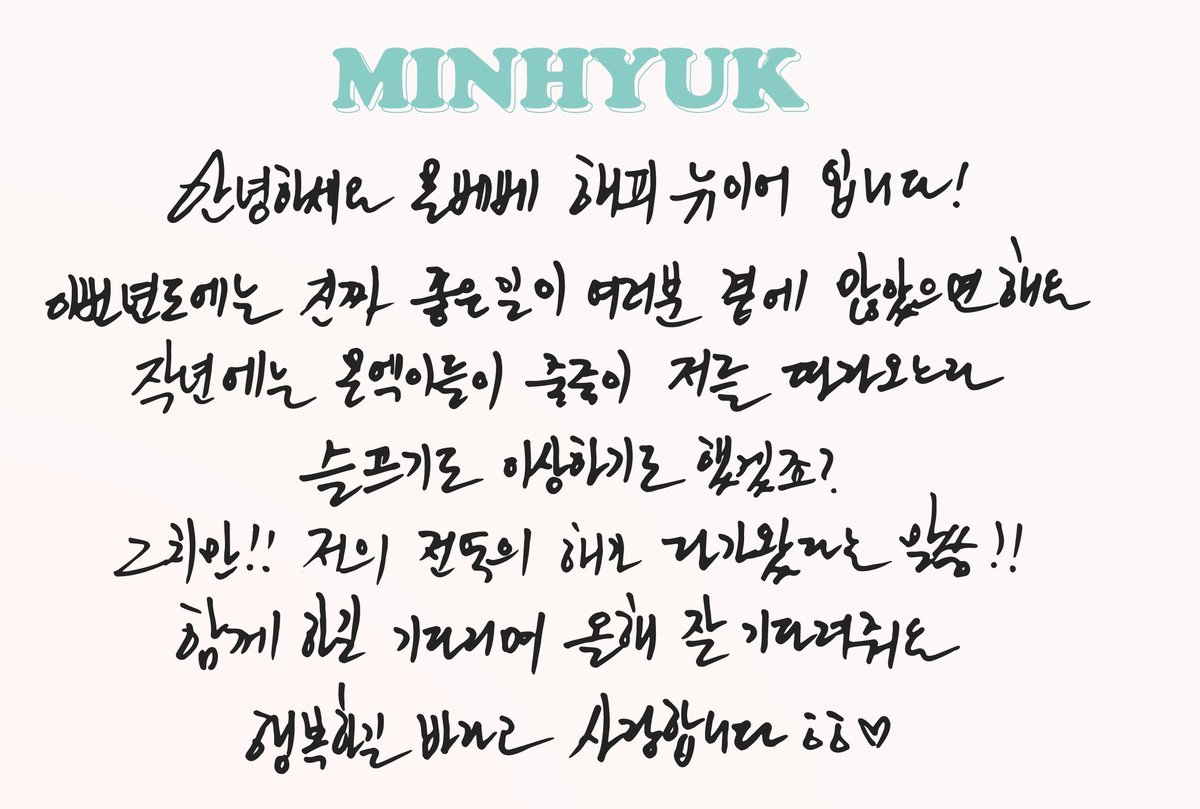 MINHYUK
안녕하세요 몬베베 해피 뉴이어 입니다!
이번년도에는 진짜 좋은일이 여러분 곁에 많았으면 해요
작년에는 몬엑이들이 줄줄이 저를 따라오느라
슬프기도 이상하기도 했겠죠?
그치만!! 저의 전역의 해가 다가왔다는 말씀!!
함께 하길 기다리며 올해 잘 기다려줘요
행복하길 바라고 사랑합니다 ㅎㅎ♡